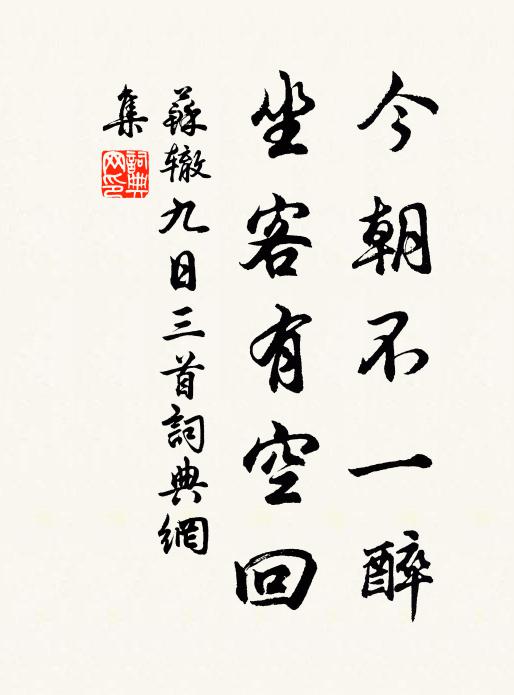 今朝不一醉
坐客有空回
蘇辙九日三首詞典網
集
詞典网印